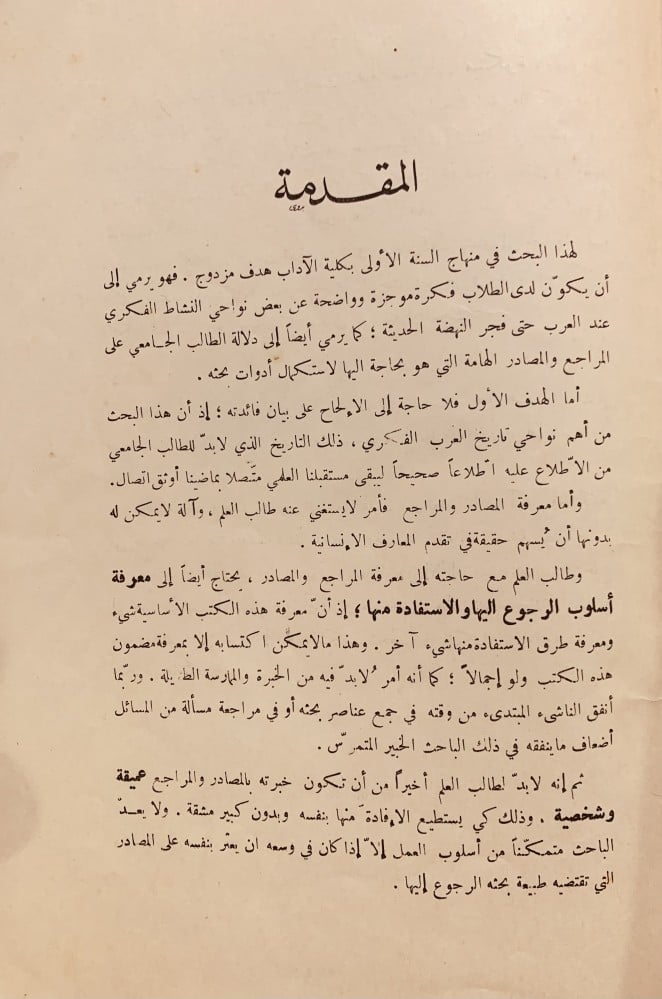 المقدمة
لهذا البحث في منهاج السنة الأولى بكلية الآداب هدف مزدوج . فهو يرمي إلى
أن يكوّن لدى الطلاب فكرة موجزة وواضحة عن بعض نواحي النشاط الفكري
عند العرب حتى فجر النهضة الحديثة ؛ كما يرمي أيضاً إلى دلالة الطالب الجامعي على
المراجع والمصادر الهامة التي هو بحاجة اليها لاستكمال أدوات بحثه .
أما الهدف الأول فلا حاجة إلى الإلحاح على بيان فائدته ؛ إذ أن هذا البحث
من أهم نواحي تاريخ العرب الفكري ، ذلك التاريخ الذي لابدّ للطالب الجامعي
من الاطّلاع عليه اطّلاعاً صحيحاً ليبقى مستقبلنا العلمي متّصلا بماضينا أوثق اتصال.
وأما معرفة المصادر والمراجع فأمر لايستغني عنه طالب العلم ، وآلة لايمكن له
بدونها أن يُسهم حقيقة في تقدم المعارف الإنسانية .
وطالب العلم مع حاجته إلى معرفة المراجع والمصادر ، يحتاج أيضاً إلى معرفة
أسلوب الرجوع اليها والاستفادة منها ؛ إذ أنّ معرفة هذه الكتب الأساسية شيء
ومعرفة طرق الاستفادة منها شيء آخر . وهذا مالايمكن اكتسابه إلا بمعرفة مضمون
هذه الكتب ولو إجمالاً ؛ كما أنه أمر لابدّ فيه من الخبرة والممارسة الطويلة . وربّما
أنفق الناشىء المبتدىء من وقته في جمع عناصر بحثه أو في مراجعة مسألة من المسائل
أضعاف ماينفقه في ذلك الباحث الخبير المتمرّس .
ثم إنه لابدّ لطالب العلم أخيراً من أن تكون خبرته بالمصادر والمراجع عميقة
وشخصية . وذلك كي يستطيع الإفادة منها بنفسه وبدون كبير مشقة . ولا يعدّ
الباحث متمكّناً من أسلوب العمل إلاّ إذا كان في وسعه ان يعثر بنفسه على المصادر
التي تقتضيه طبيعة بحثه الرجوع إليها .